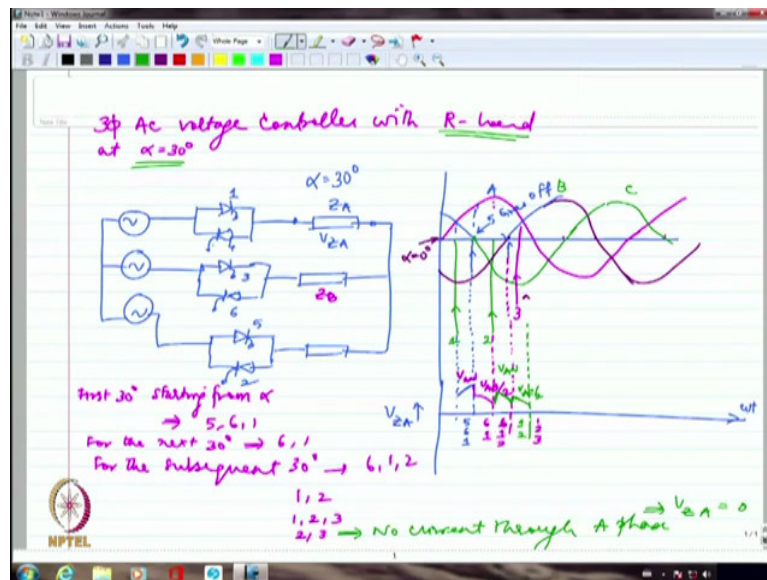 Note1 - Windows Journal
File Edit View Insert Actions Tools Help
Whole Page
Note Title
3φ Ac voltage Controller with R-load
at α=30°
α=30°
1
4
ZA
VZA
3
6
ZB
5
2
A
5 Gone off
B
C
α=0°
1
2
3
First 30° starting from α
⇒ 5,6,1
For the next 30° ⇒ 6,1
For the subsequent 30° → 6,1,2
1,2
1,2,3
2,3 → No current through A phase ⇒ VZA = 0
VZA ↑
ωt
5 6 1
6 1
6 1 2
1 2
1 2 3
NPTEL
1
1/1